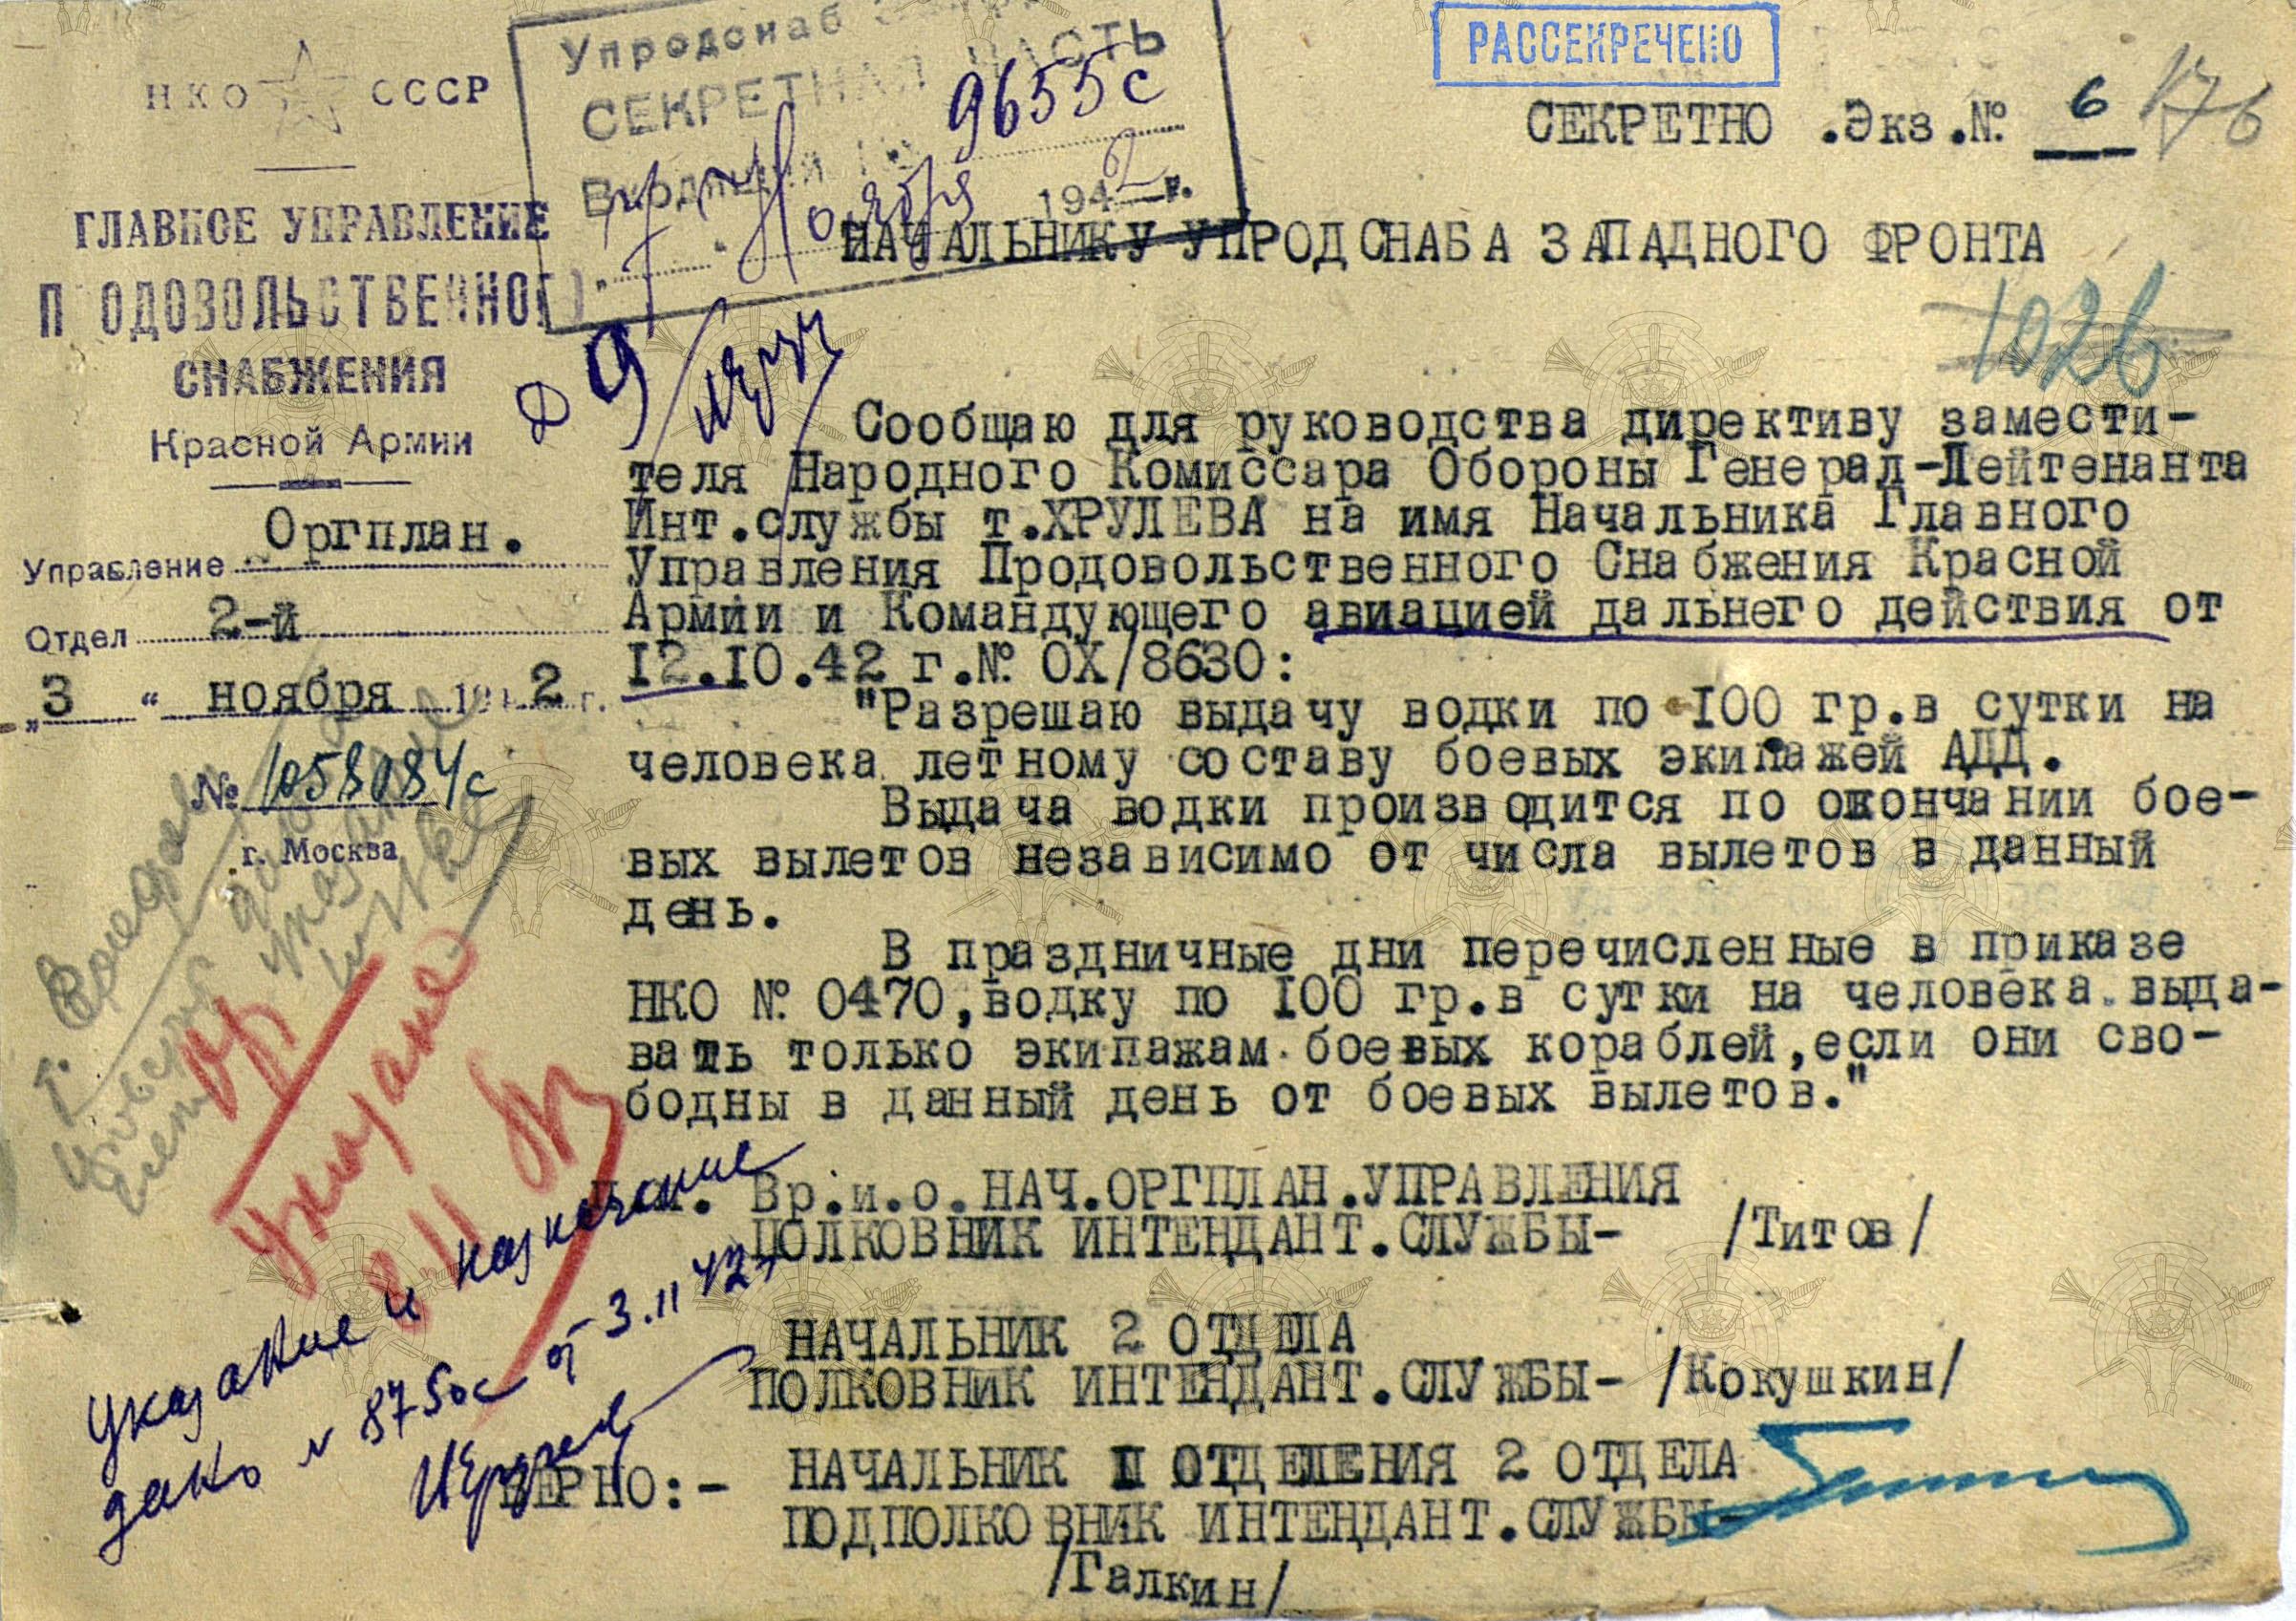 НКО СССР
ГЛАВНОЕ УПРАВЛЕНИЕ
П ОДОВОЛЬСТВЕННОГО
СНАБЖЕНИЯ
Красной Армии
Управление Оргплан.
Отдел 2-й
„3 “ ноября 1942 г.
№ 1058084с
г. Москва
Упродснаб
СЕКРЕТНАЯ ЧАСТЬ
Входящий № 9655с
Ноября 1942 г.
РАССЕКРЕЧЕНО
СЕКРЕТНО .Экз.№. 6
176
НАЧАЛЬНИКУ УПРОДСНАБА ЗАПАДНОГО ФРОНТА
1026
Сообщаю для руководства директиву замести-
теля Народного Комиссара Обороны Генерал-Лейтенанта
Инт.службы т.ХРУЛЕВА на имя Начальника Главного
Управления Продовольственного Снабжения Красной
Армии и Командующего авиацией дальнего действия от
12.10.42 г.№. ОХ/8630:
"Разрешаю выдачу водки по 100 гр.в сутки на
человека летному составу боевых экипажей АДД.
Выдача водки производится по окончании бое-
вых вылетов независимо от числа вылетов в данный
день.
В праздничные дни перечисленные в приказе
НКО №. 0470,водку по 100 гр.в сутки на человека выда-
вать только экипажам боевых кораблей,если они сво-
бодны в данный день от боевых вылетов."
Вр.и.о.НАЧ.ОРГПЛАН.УПРАВЛЕНИЯ
ПОЛКОВНИК ИНТЕНДАНТ.СЛУЖБЫ- /Титов/
НАЧАЛЬНИК 2 ОТДЕЛА
ПОЛКОВНИК ИНТЕНДАНТ.СЛУЖБЫ- /Кокушкин/
ВЕРНО:- НАЧАЛЬНИК II ОТДЕЛЕНИЯ 2 ОТДЕЛА
ПОДПОЛКОВНИК ИНТЕНДАНТ.СЛУЖБЫ-
/Галкин/
Указание
8.11
Указание и назначение
дано № 8750с от 3.11 42г